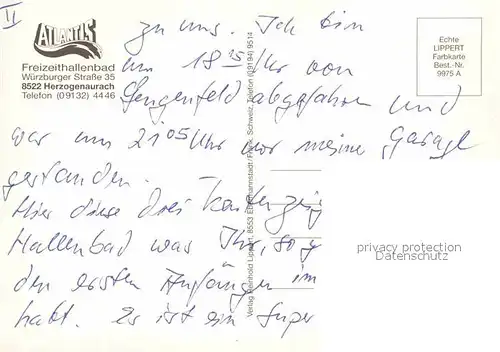 II
ATLANTIS
Freizeithallenbad
Würzburger Straße 35
8522 Herzogenaurach
Telefon (09132) 4446
Echte
LIPPERT
Farbkarte
Best.-Nr.
9975 A
zu uns. Ich bin
um 18 15 Uhr von
Lengenfeld abgefahren und
war um 21 05 Uhr vor meine Garage
gestanden.
Hier diese drei
Hallenbad was Ihr, so
den ersten Anfängen im
habt. Es ist ein Super
Verlag Reinhold Lippert, 8553 Ebermannstadt/Fränk. Schweiz, Telefon (09194) 9514
privacy protection
Datenschutz